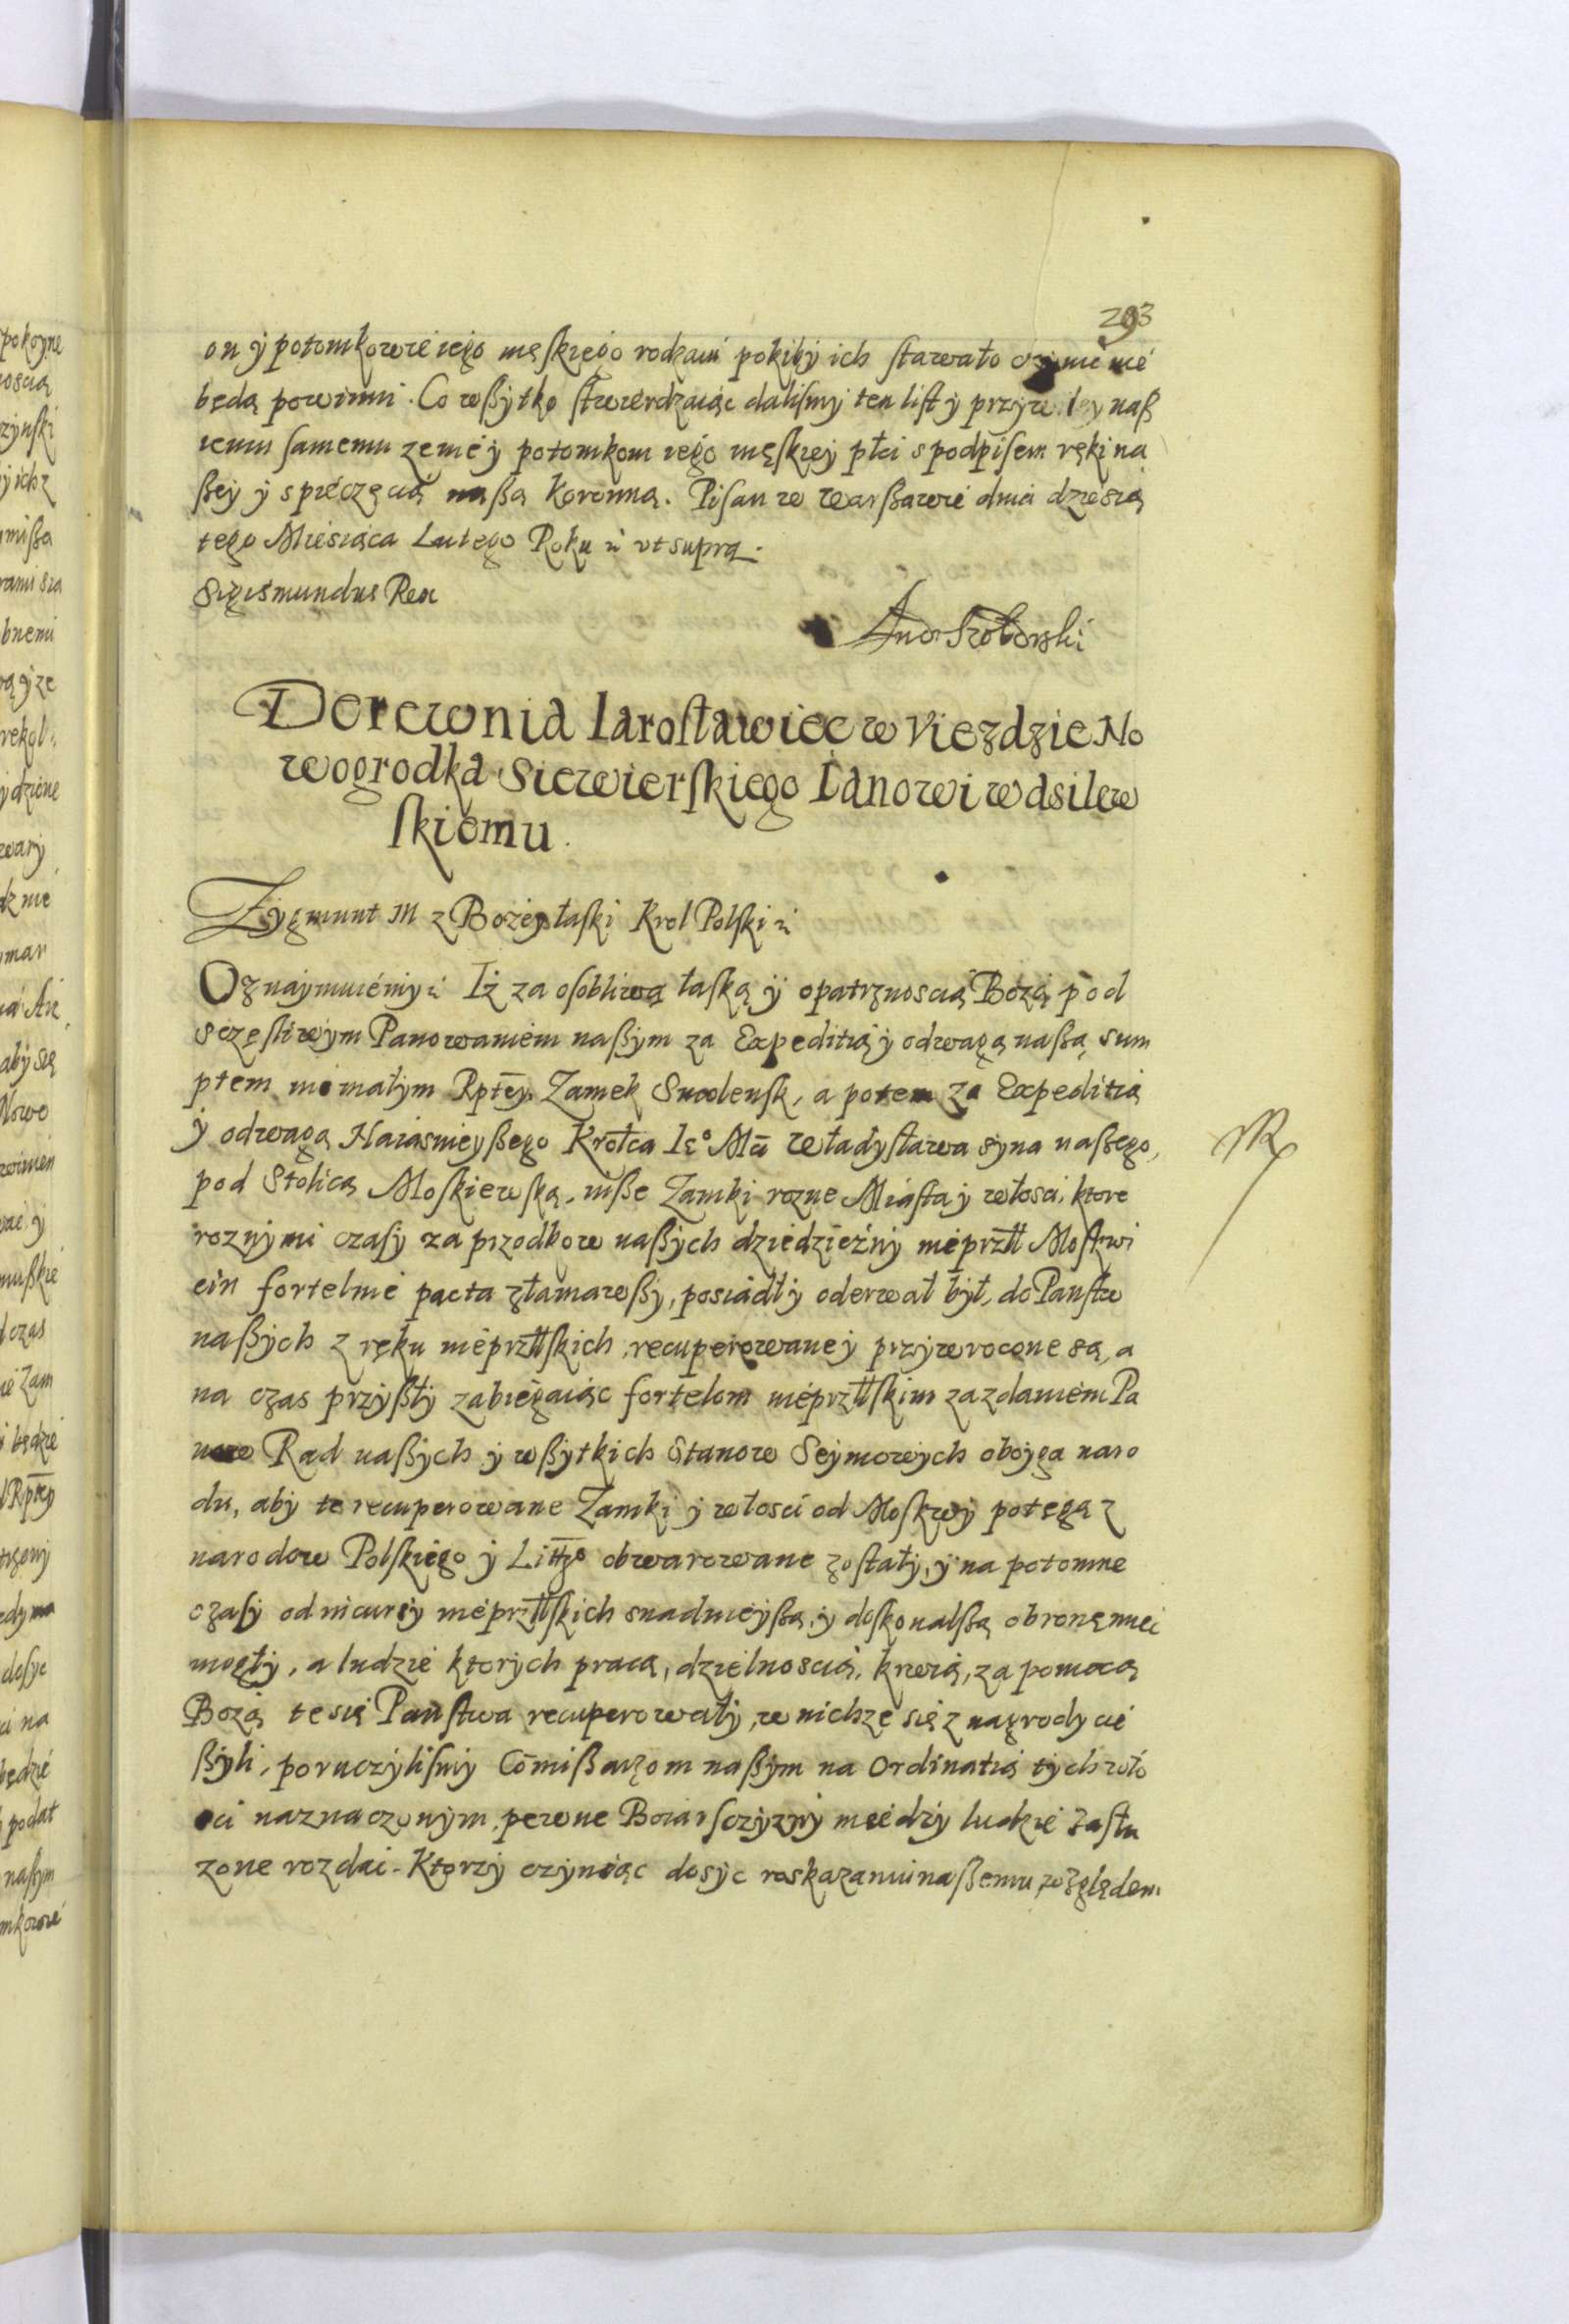 293
on y potomkowie iego męskiego rodzaiu pokiby ich stawało czynić nie
będą powinni. Co wßytko stwierdzaiąc daliśmy ten list y przywiley naß
iemu samemu zenie y potomkom iego męskiey płci s podpisem ręki na
ßey y s pieczęcią naßą Koronną. Pisan w Warßawie dnia dziesią
tego Miesiąca Lutego Roku ut supra.
Sigismundus Rex
Derewnia Iarosławiec w Viezdzie No
wogrodka Siewierskiego Ianowi Wasilew
skiemu.
Zygmunt III z Bożey łaski Krol Polski
Oznaymuiemy Iż za osobliwą łaską y opatrznoscią Bożą pod
sczęśliwym Panowaniem naßym za Expeditią y odwagą naßą sum
ptem niemałym Rptey. Zamek Smolensk, a potem za Expeditią
y odwagą Naiasnieyßego Krolca Ie° Mci Władysława syna naßego,
pod Stolicą Moskiewską, inße Zamki rozne Miasta y włosci, ktore
roznymi czasy za przodkow naßych dziedziczny nieprzll Moskwi
cin fortelnie pacta złamawßy, posiadł y oderwał był, do Panstw
naßych z ręku nieprzllskich, recuperowane y przywrocone są, a
na czas przyßły zabiegaiąc fortelom nieprzllskim za zdaniem Pa
now Rad naßych y wßytkich Stanow Seymowych oboyga naro
du, aby te recuperowane Zamki y włosci od Moskwy potęgą z
narodow Polskiego y Litt° obwarowane zostały, y na potomne
czasy od incursiy nieprzllskich snadnieyßą y doskonalßą obronę miec
mogły, a ludzie ktorych pracą, dzielnoscią, krwią, za pomocą
Bożą te się Panstwa recuperowały, w nichze się z nagrody cie
ßyli, poruczylismy Comißarzom naßym na Ordinatią tych wło
sci naznaczonym, pewne Boiarsczyzny miedzy ludzie zasłu
zone rozdac. Ktorzy czyniąc dosyc roskazaniu naßemu, względem